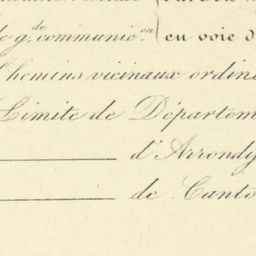 de g.de communic.on en voie d
Chemins vicinaux ordin
Limite de Départem
d'Arrondi
de Canto